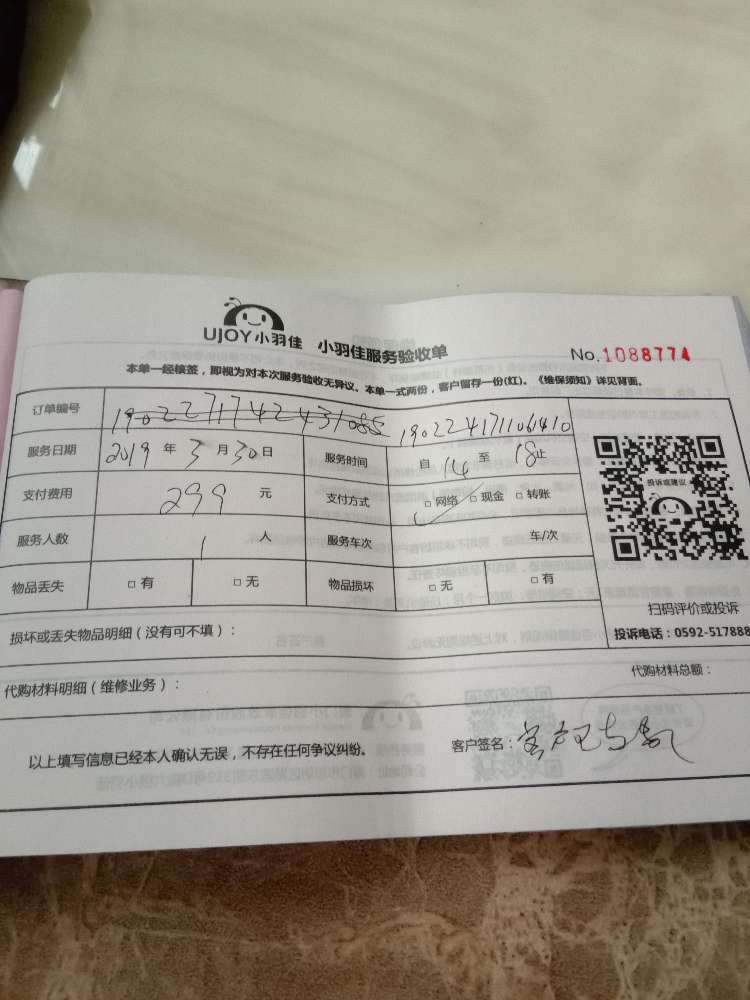 UJOY小羽佳 小羽佳服务验收单 No.1088774
本单一经核签，即视为对本次服务验收无异议。本单一式两份，客户留存一份(红)。《维保须知》详见背面。
订单编号 1902271742431085 1902241711061410
服务日期 2019 年 3 月 30 日 服务时间 自 14 至 18 止
支付费用 299 元 支付方式 □ 网络 □ 现金 □ 转账
服务人数 1 人 服务车次 车/次
物品丢失 □ 有 □ 无 物品损坏 □ 无 □ 有
投诉或建议
扫码评价或投诉
投诉电话：0592-517888
损坏或丢失物品明细（没有可不填）：
代购材料明细（维修业务）： 代购材料总额：
以上填写信息已经本人确认无误，不存在任何争议纠纷。 客户签名：